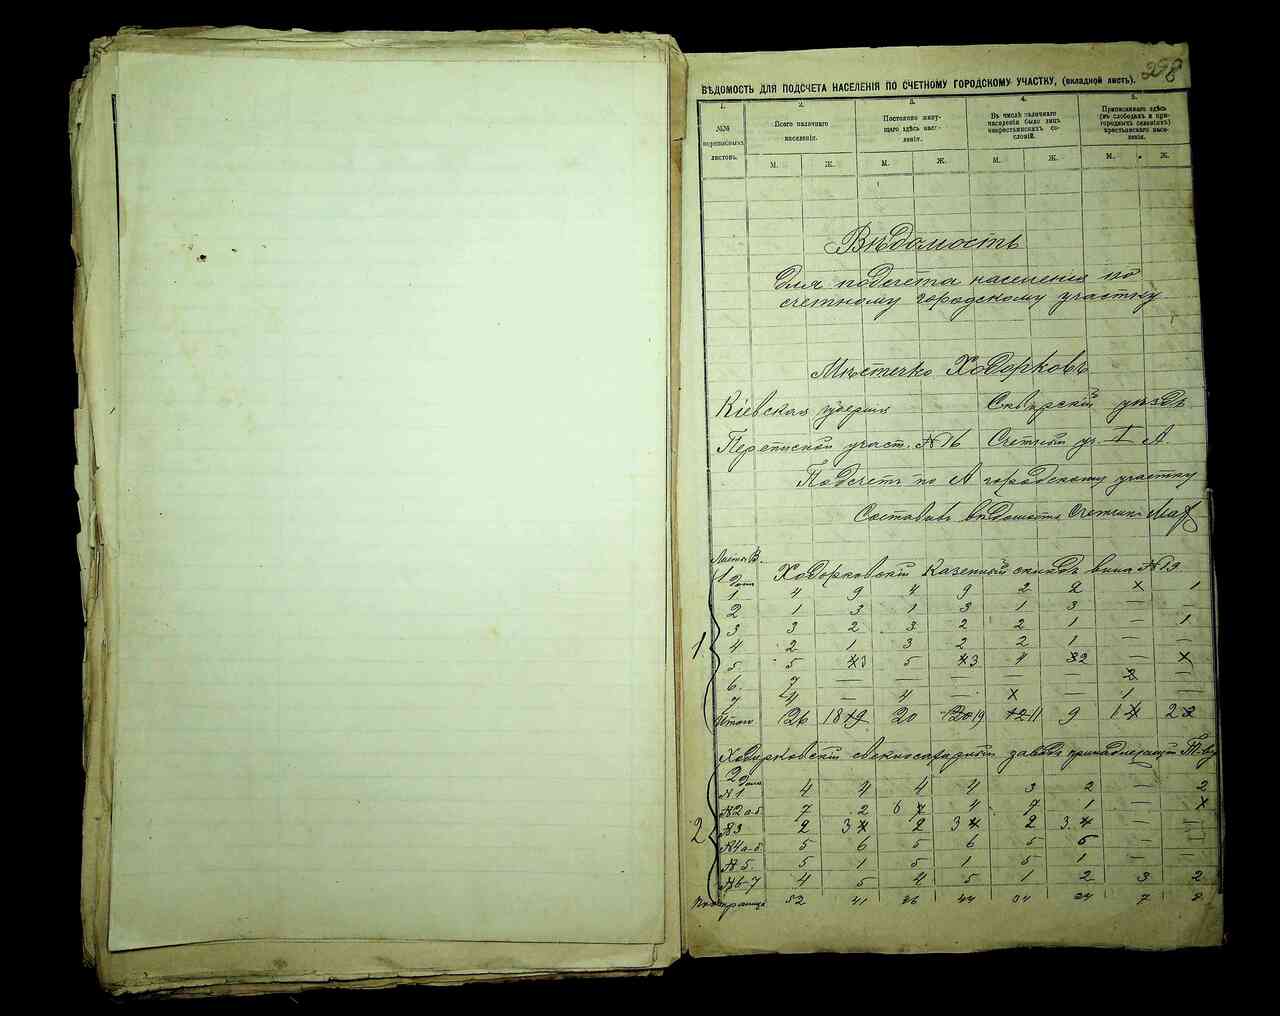 298
ВѢДОМОСТЬ ДЛЯ ПОДСЧЕТА НАСЕЛЕНІЯ ПО СЧЕТНОМУ ГОРОДСКОМУ УЧАСТКУ, (вкладной листъ).
1. 2. 3. 4. 5.
№№ переписныхъ листовъ.
Всего наличнаго населенія.
Постоянно живущаго здѣсь населенія.
Въ числѣ наличнаго населенія было лицъ некрестьянскихъ сословій.
Приписаннаго здѣсь (въ слободахъ и пригородныхъ селеніяхъ) крестьянскаго населенія.
М. Ж. М. Ж. М. Ж. М. Ж.
Вѣдомость
для подсчета населенія по
счетному городскому участку
Мѣстечко Ходорковъ
Кіевская губернія Сквирскій уѣздъ
Переписной участ. №16 Счетный уч. I А
Подсчетъ по А городскому участку
Составилъ вѣдомость Счетчик
Листы В.
1 Ходорковскій Казенный складъ вина №19
1 4 9 4 9 2 2 х 1
2 1 3 1 3 1 3 — —
3 3 2 3 2 2 1 — 1
4 2 1 3 2 2 1 — —
5. 5 3 5 3 4 2 — х
6. 7 — — — — —
7 4 — 4 — х — 1 —
Итого 26 18 20 19 11 9 1 2
1
Ходорковскій свеклосахарный заводъ принадлежащій Т-ву
2
№1 4 4 4 4 3 2 — 2
№2 а-б 7 2 6 4 7 1 — х
№3 2 3 2 3 2 3
№4 а-б. 5 6 5 6 5 6 —
№5. 5 1 5 1 5 1 —
№6-7 4 5 4 5 1 2 3 2
2
52 41 44 7